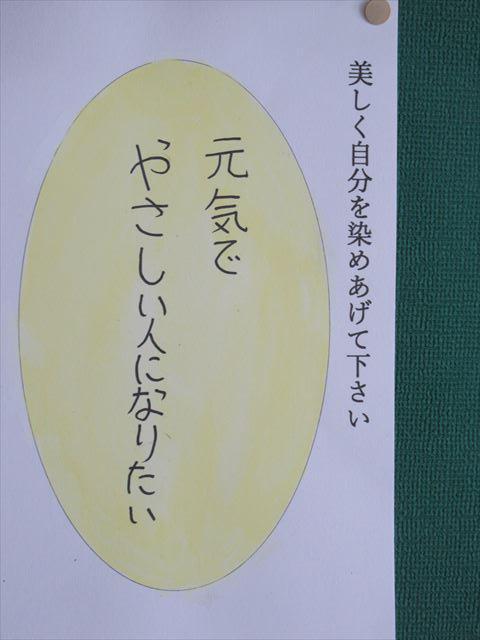 美しく自分を染めあげて下さい
元気で
やさしい人になりたい